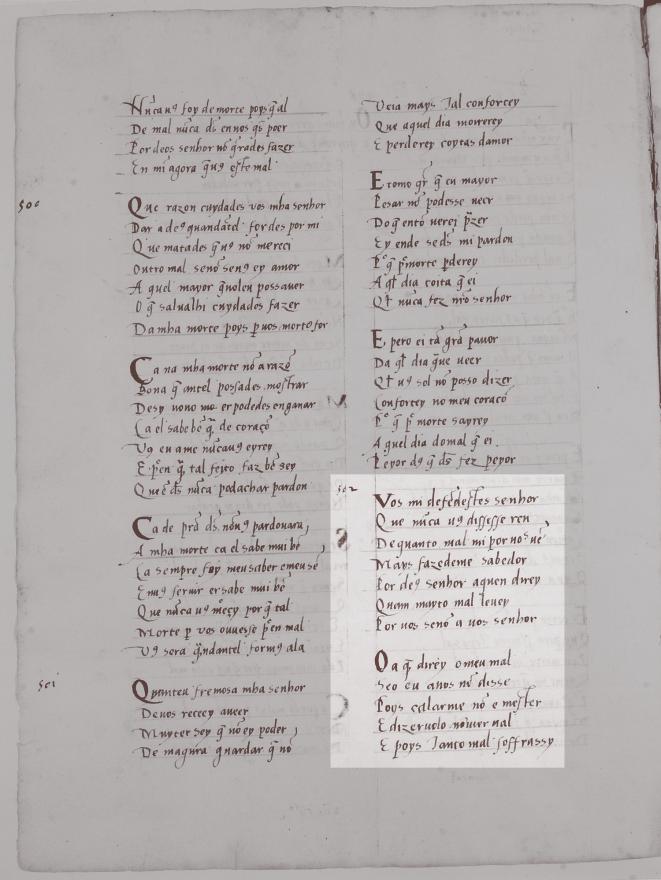 Nũcau9 foy de morte poys q̃ al
De mal nũca d̃s en nos q̃s poer
Por deos senhor nõ q̃rades fazer
En mi agora q̃ u9 este mal
500
Que razon cuydades vos mha senhor
Dar a de9 quandãtel for des por mi
Que matades q̃ u9 nõ mereci
Outro mal senõ sen9 ey amor
A quel mayor q̃ uoleu possauer
O q̃ salualhi cuydades fazer
Da mha morte poys p uos morto for
Ca na mha morte nõ a razõ
Bona q̃ antel possades mostrar
Desy uono er podedes enganar
Ca el sabe bẽ q̃ de coraçõ
Vg eu ame nũcau9 eyrey
E pẽn q̃ tal feito faz bẽ sey
Que ẽ d̃s nũca podachar pardon
Ca de prã d̃s nõ u9 pardouara
A mha morte ca el sabe mui bẽ
Ca sempre foy meu saber e meu sẽ
Em u9 seruir er sabe mui bẽ
Que nũca u9 mẽcy por q̃ tal
Morte p vos ouuesse pẽn mal
Vg sera q̃ndantel form9 ala
501
Quanteu fremosa mha senhor
De uos receey aueer
Muyter sey q̃ nõ ey poder
De magora guardar q̃ nõ
Veia mays Tal conforcey
Que aquel dia morrerey
E perderey coytas damor
E como gr̃ q̃ eu mayor
Pesar nõ podesse ueer
Do q̃ entõ uerei p̃zer
Ey ende se d̃s mi pardon
P̃o q̃ p̃ morte pderey
A q̃l dia coita q̃ ei
Q̃l nũca fez nr̃o senhor
E, pero ei tã grã pauor
Da q̃l dia q̃ ue ueer
Q̃l u9 sol nõ posso dizer
Confortey no meu coraçõ
P̃o q̃ p̃ morte sayrey
A quel dia do mal q̃ ei
Peyor do q̃ d̃s fez peyor
502
Vos mi defẽdestes senhor
Que nũca u9 dissesse ren
De quanto mal mi por nos uẽ
Mays fazedeme sabedor
Por de9 senhor aquen direy
Quam muyto mal leuey
Por uos senõ a uos senhor
Oa q̃ direy o meu mal
Seo eu auos nõ disse
Poys calarme nõ e mester
E dizeruolo nõ uer nal
E poys Tanto mal soffrassy